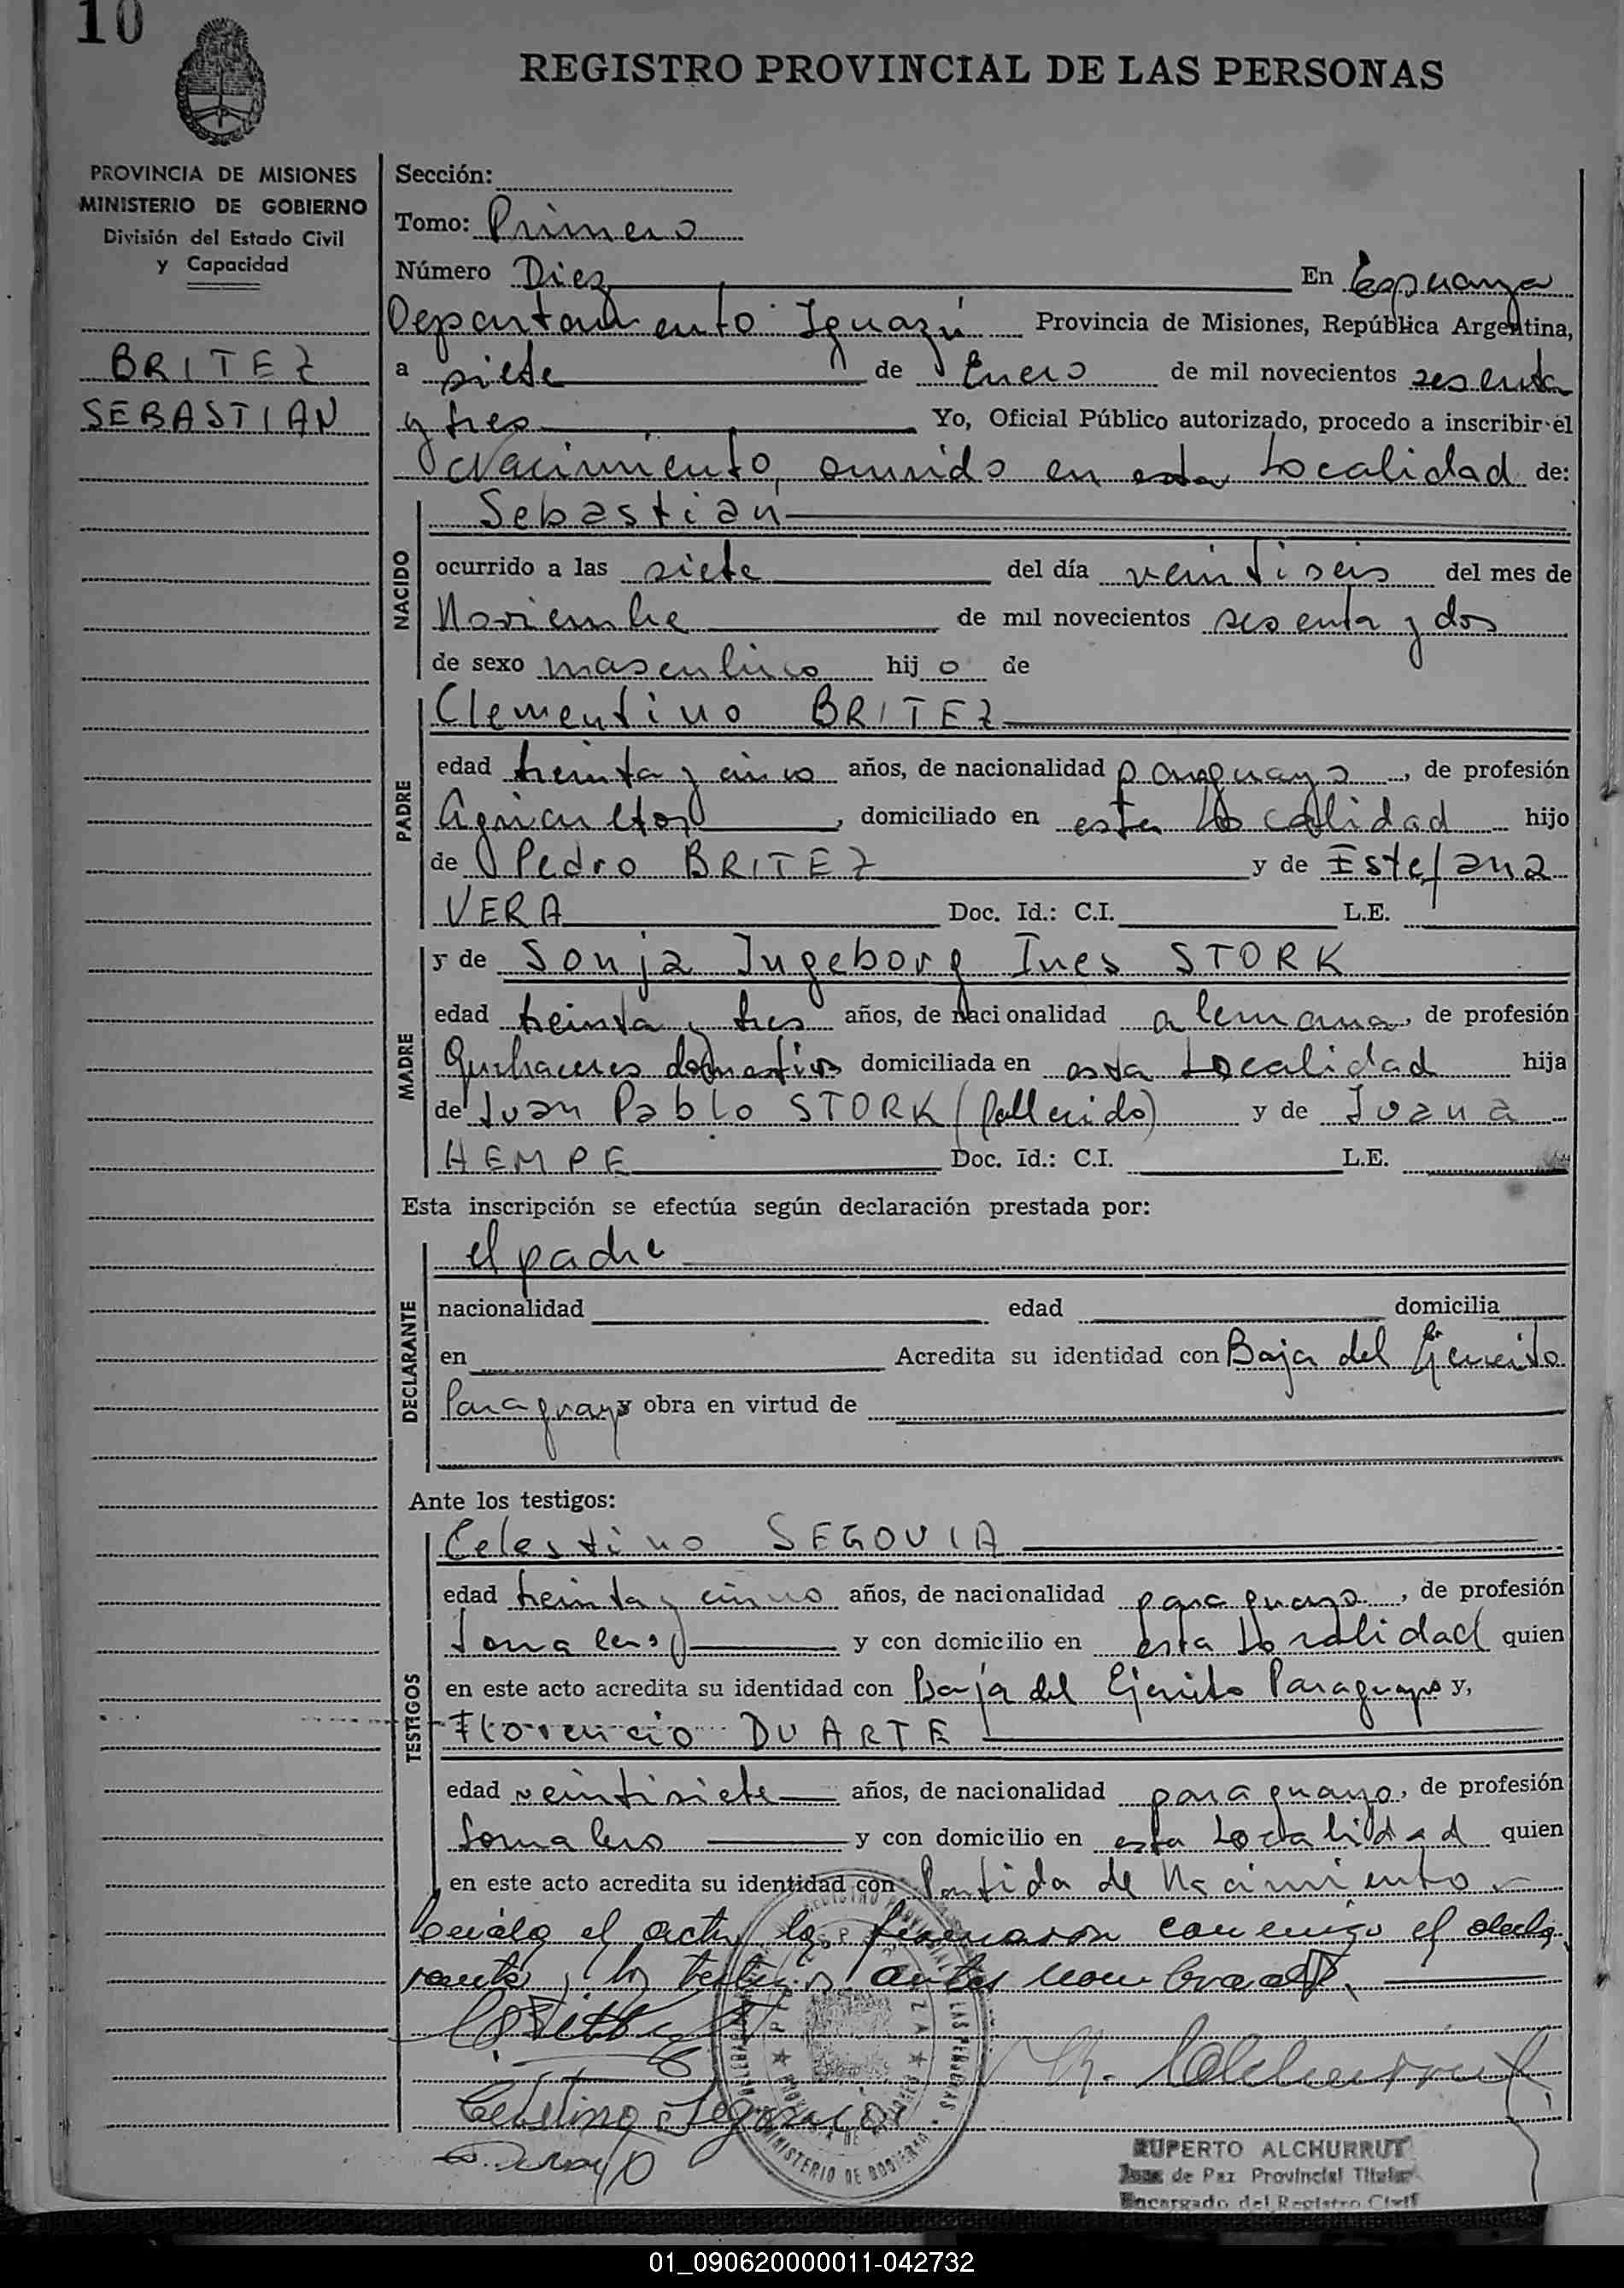 10
REGISTRO PROVINCIAL DE LAS PERSONAS
PROVINCIA DE MISIONES
MINISTERIO DE GOBIERNO
División del Estado Civil
y Capacidad
BRITEZ
SEBASTIAN
Sección:
Tomo: Primero
Número Diez En Esperanza
Departamento Iguazú Provincia de Misiones, República Argentina,
a siete de Enero de mil novecientos sesenta
y tres Yo, Oficial Público autorizado, procedo a inscribir el
Nacimiento, ocurrido en esta Localidad de:
NACIDO
Sebastian
ocurrido a las siete del día veintiseis del mes de
Noviembre de mil novecientos sesenta y dos
de sexo masculino hijo de
PADRE
Clementino BRITEZ
edad treinta y cinco años, de nacionalidad paraguayo, de profesión
Agricultor, domiciliado en esta Localidad hijo
de Pedro BRITEZ y de Estefana
VERA Doc. Id.: C.I. L.E.
MADRE
y de Sonja Ingeborg Ines STORK
edad treinta y tres años, de nacionalidad alemana, de profesión
Quehaceres domesticos domiciliada en esta Localidad hija
de Juan Pablo STORK (fallecido) y de Juana
HEMPE Doc. Id.: C.I. L.E.
Esta inscripción se efectúa según declaración prestada por:
DECLARANTE
el padre
nacionalidad edad domicilia
en Acredita su identidad con Baja del Ejercito
Paraguayo obra en virtud de
Ante los testigos:
TESTIGOS
Celestino SEGOVIA
edad treinta y cinco años, de nacionalidad paraguayo, de profesión
Jornalero y con domicilio en esta Localidad quien
en este acto acredita su identidad con Baja del Ejercito Paraguayo y,
Florencio DUARTE
edad veintisiete años, de nacionalidad paraguayo, de profesión
Jornalero y con domicilio en esta Localidad quien
en este acto acredita su identidad con Partida de Nacimiento
el acta la firmaron conmigo el decla
rante y los testigos antes nombrados.
Celestino Segovia
MINISTERIO DE GOBIERNO
RUPERTO ALCHURRUT
Juez de Paz Provincial Titular
Encargado del Registro Civil
01_090620000011-042732